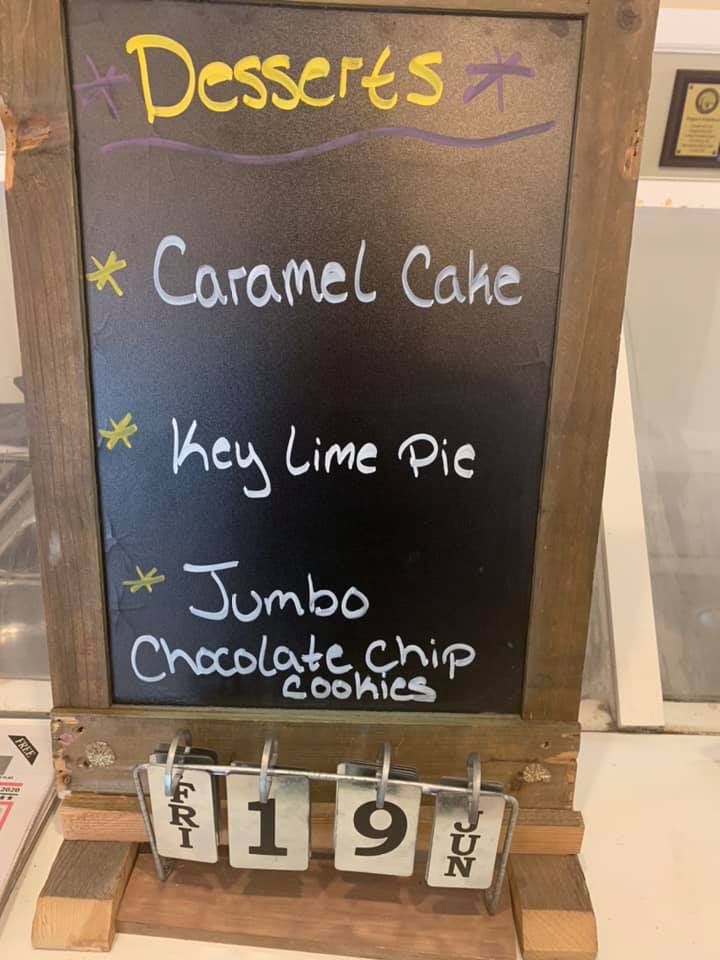 Desserts
Caramel Cake
Key Lime Pie
Jumbo
Chocolate Chip
cookies
FREE
2020
FRI 1 9 JUN